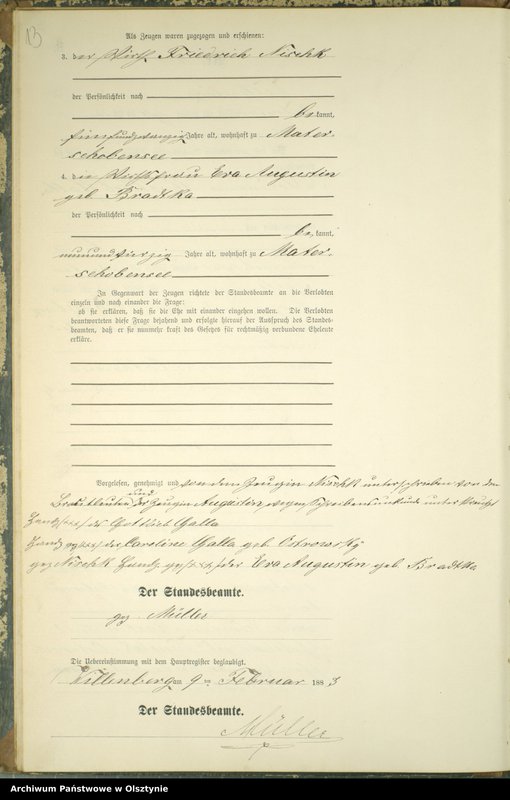 13
Als Zeugen waren zugezogen und erschienen:
3. der Wirth Friedrich Nischk
der Persönlichkeit nach
be kannt,
fünfundzwanzig Jahre alt, wohnhaft zu Mater-
schobensee
4. die Wirthsfrau Eva Augustin
geb. Bradtka
der Persönlichkeit nach
be kannt,
neunundvierzig Jahre alt, wohnhaft zu Mater-
schobensee
In Gegenwart der Zeugen richtete der Standesbeamte an die Verlobten
einzeln und nach einander die Frage:
ob sie erklären, daß sie die Ehe mit einander eingehen wollen. Die Verlobten
beantworteten diese Frage bejahend und erfolgte hierauf der Ausspruch des Standes-
beamten, daß er sie nunmehr kraft des Gesetzes für rechtmäßig verbundene Eheleute
erkläre.
Vorgelesen, genehmigt und von dem Zeugin Nischk unterschrieben von den
Brautleuten und der Zeugin Augustin wegen Schreibensunkunde unterkreuzt
Handz xxx des Gottlieb Galla
Handz xxx der Caroline Galla geb. Ostrowsky
gez Nischk Handz xxx der Eva Augustin geb. Bradtka
Der Standesbeamte.
gez Müller
Die Uebereinstimmung mit dem Hauptregister beglaubigt.
Willenberg am 9 ten Februar 1883
Der Standesbeamte.
Müller
Archiwum Państwowe w Olsztynie